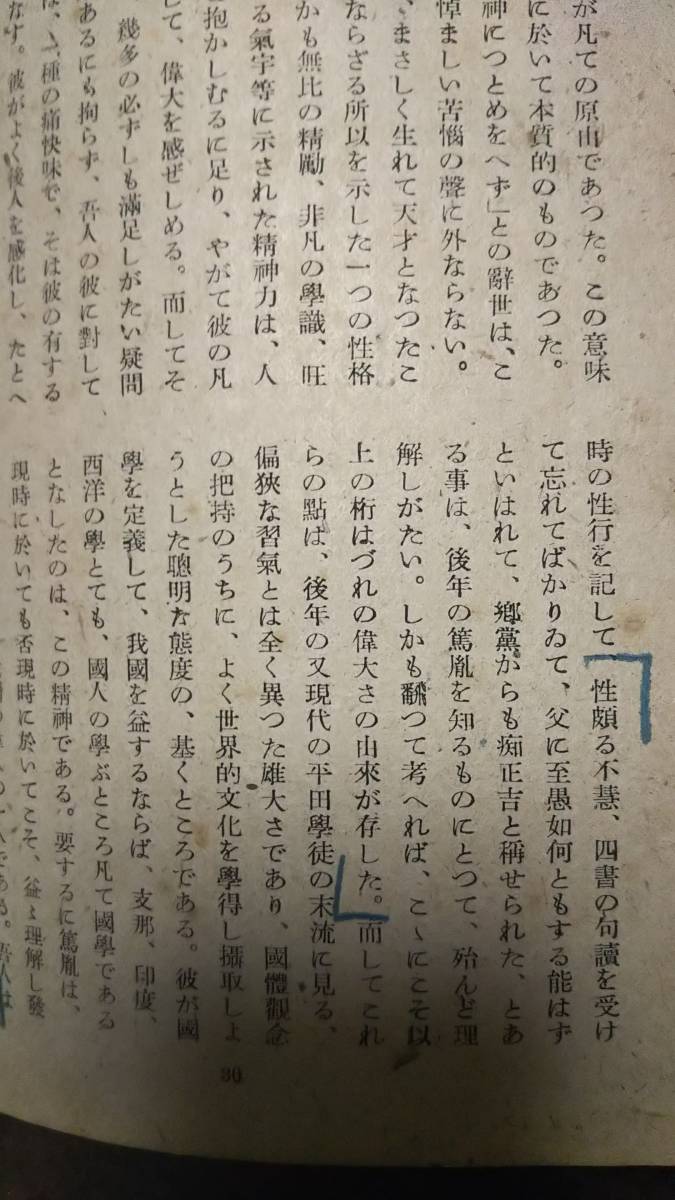 が凡ての原由であつた。この意味
に於いて本質的のものであつた。
神につとめをへず」との辭世は、こ
悼ましい苦惱の聲に外ならない。
、まさしく生れて天才となつたこ
ならざる所以を示した一つの性格
かも無比の精勵、非凡の學識、旺
る氣宇等に示された精神力は、人
抱かしむるに足り、やがて彼の凡
して、偉大を感ぜしめる。而してそ
幾多の必ずしも滿足しがたい疑問
あるにも拘らず、吾人の彼に對して
は、一種の痛快味で、そは彼の有する
なす。彼がよく後人を感化し、たとへ
時の性行を記して、「性頗る不慧、四書の句讀を受け
て忘れてばかりゐて、父に至愚如何ともする能はず
といはれて、鄕黨からも痴正吉と稱せられた、とあ
る事は、後年の篤胤を知るものにとつて、殆んど理
解しがたい。しかも飜つて考へれば、こゝにこそ以
上の桁はづれの偉大さの由來が存した。而してこれ
らの點は、後年の又現代の平田學徒の末流に見る、
偏狹な習氣とは全く異つた雄大さであり、國體觀念
の把持のうちに、よく世界的文化を學得し攝取しよ
うとした聰明な態度の、基くところである。彼が國
學を定義して、我國を益するならば、支那、印度、
西洋の學とても、國人の學ぶところ凡て國學である
となしたのは、この精神である。要するに篤胤は、
現時に於いても否現時に於いてこそ、益〻理解し發
である。吾人は
30